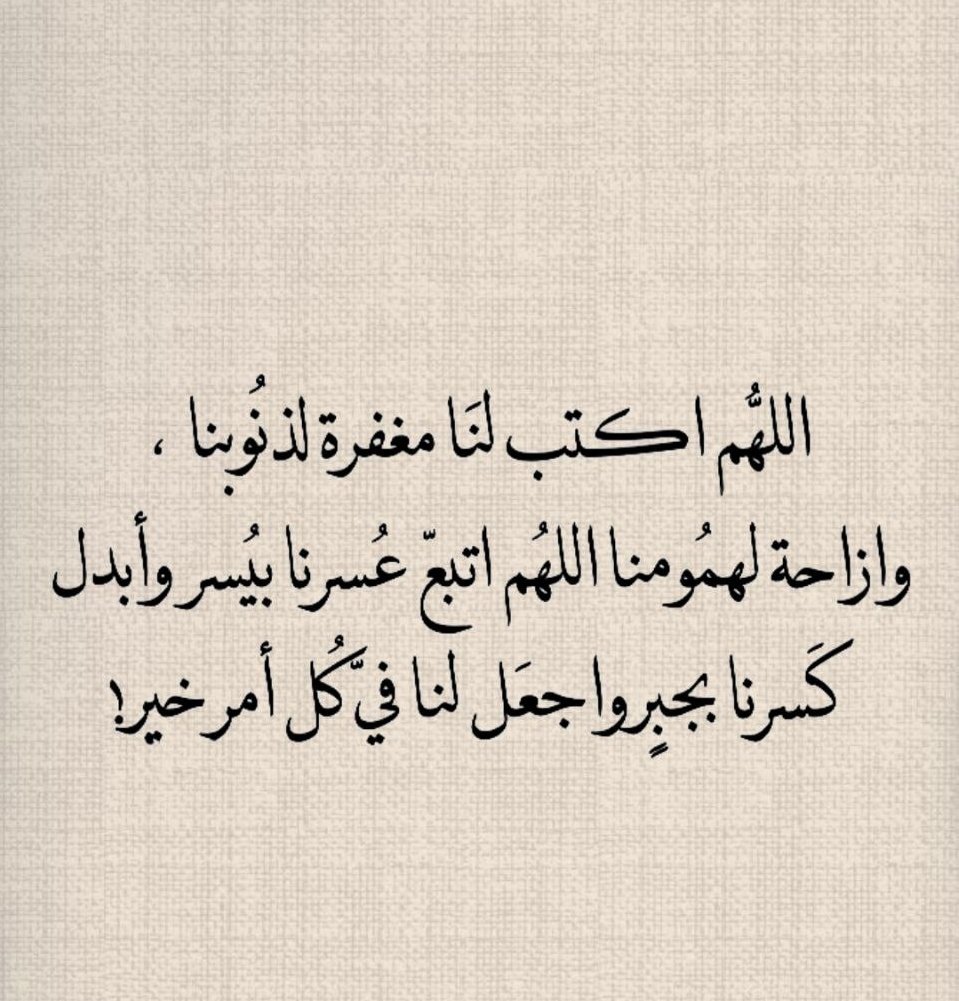 اللهُّم اكتب لنَا مغفرة لذنُوبنا ،
وازاحة لهمُومنا اللهُم اتبعّ عُسرنا بيُسر وأبدل
كَسرنا بجبرٍ واجعَل لنا فيّ كُل أمر خير!